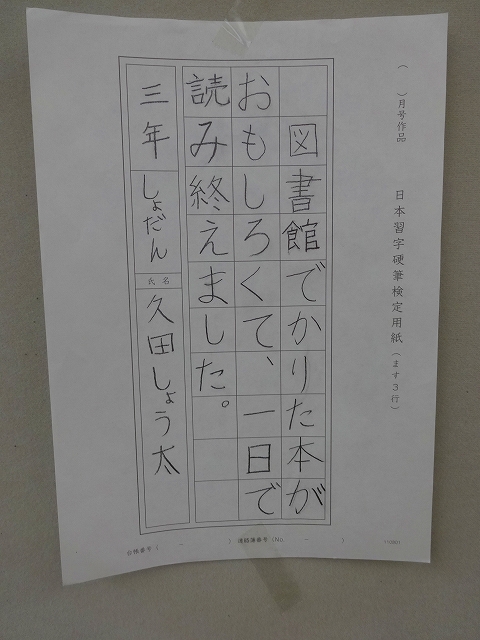 ( )月号作品
日本習字硬筆検定用紙(ます3行)
図書館でかりた本が
おもしろくて、一日で
読み終えました。
三年 しょだん 氏名 久田しょう太
台帳番号( - ) 連絡簿番号(No. - )